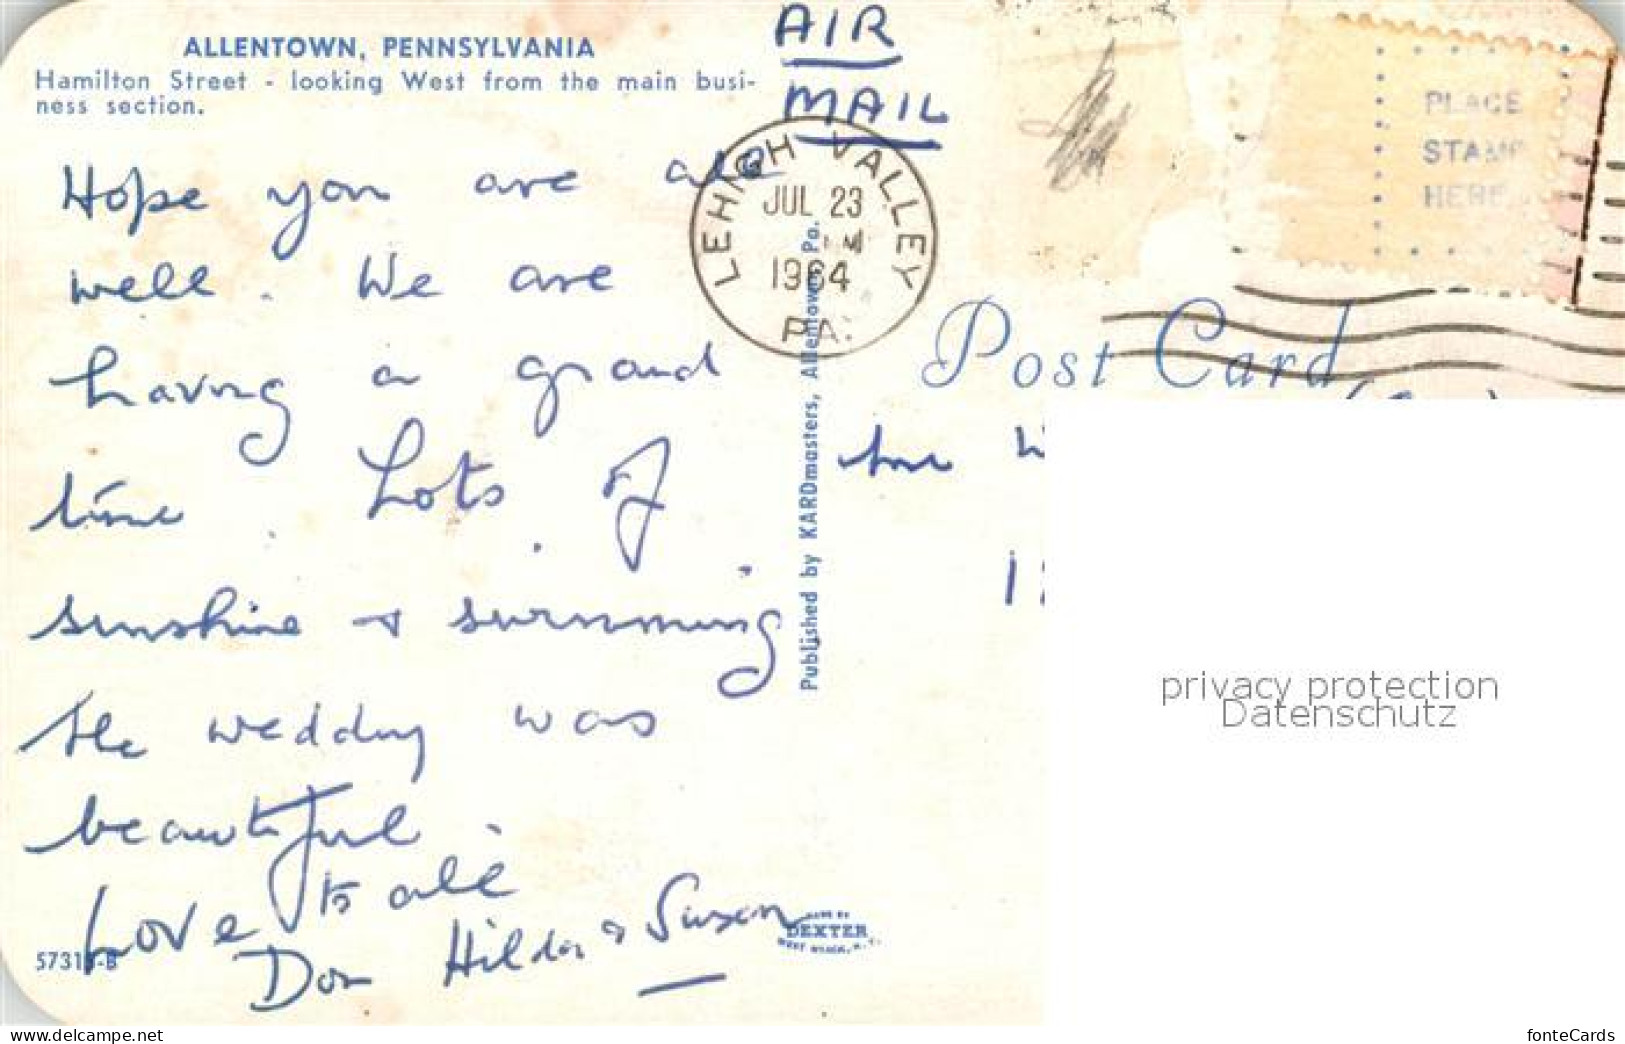 ALLENTOWN, PENNSYLVANIA
Hamilton Street - looking West from the main busi-
ness section.
AIR
MAIL
LEHIGH VALLEY
JUL 23
1964
PA.
PLACE
STAMP
HERE
Post Card
Hope you are all
well. We are
having a grand
time. Lots of
sunshine + swimming.
The wedding was
beautiful.
Love to all
Don Hilda + Susan
Published by KARDmasters, Allentown, Pa.
MADE BY
DEXTER
WEST NYACK, N.Y.
privacy protection
Datenschutz
www.delcampe.net
fonteCards